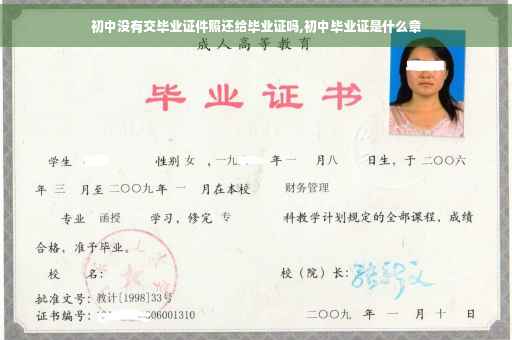 初中没有交毕业证件照还给毕业证吗,初中毕业证是什么章
成人高等教育
毕业证书
学生 性别 女 ,一九 年一 月八 日生，于二〇〇六
年 三 月至二〇〇九年 一 月在本校 财务管理
专业 函授 学习，修完 专 科教学计划规定的全部课程，成绩
合格，准予毕业。
校 名： 校（院）长：
批准文号：教计[1998]33号
证书编号： 06001310 二〇〇九 年 一 月 十 日